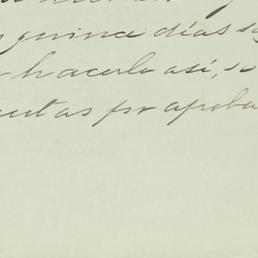 quince días
hacerlo así, se
por aproba